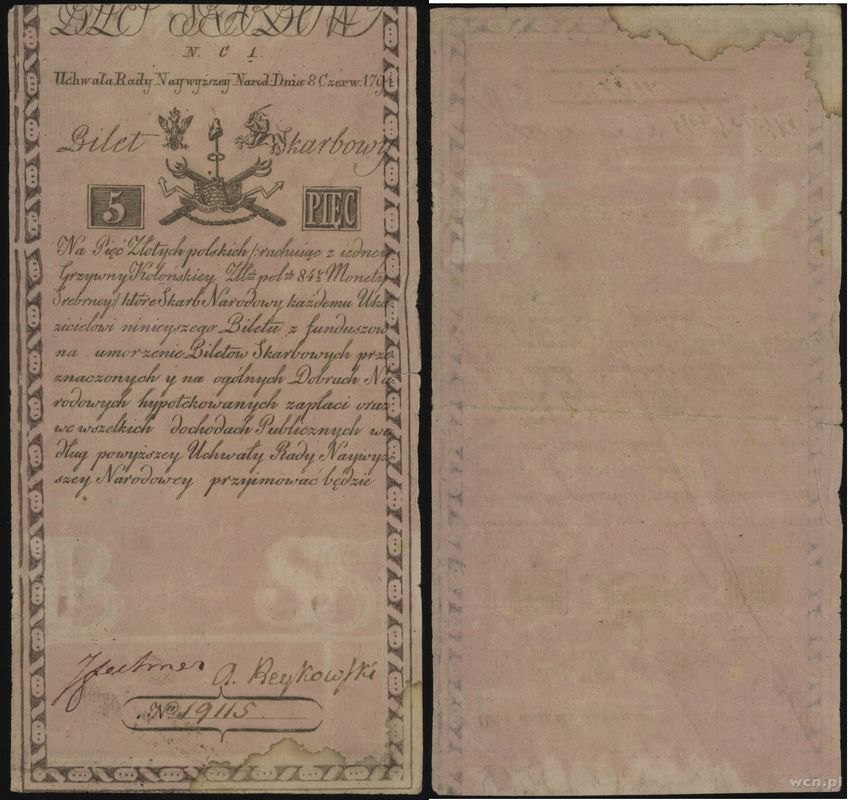 BILET SKARBOWY
N. C 1.
Uchwała Rady Naywyższey Narod: Dnia 8 Czerw. 1794
Bilet Skarbowy
5 PIĘC
Na Pięć Złotych polskich /: rachuiąc z iedney
Grzywny Kolońskiey Złłt. pol. 84 ½ Monety
Srebrney/ które Skarb Narodowy każdemu Uka-
zicielowi ninieyszego Biletu z funduszow
na umorzenie Biletow Skarbowych prze
znaczonych y na ogólnych Dobrach Na-
rodowych hypotekowanych zapłaci oraz
we wszelkich dochodach Publicznych we
dług powyższey Uchwały Rady Naywyż-
szey Narodowey przyimować będzie
A. Reykowski
No. 19115
wcn.pl